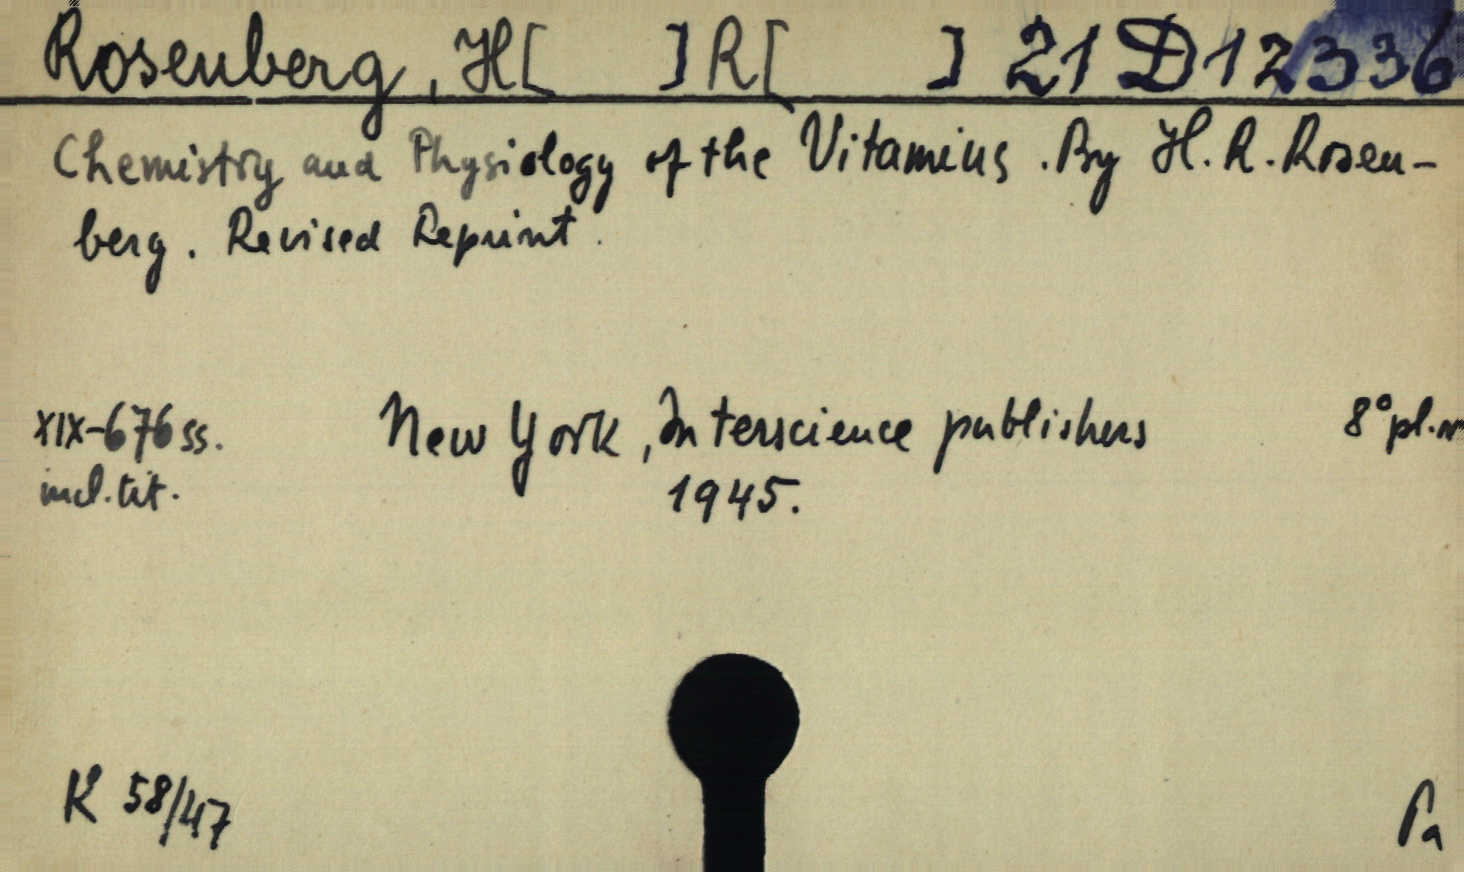 Rosenberg, H[ ] R[ ] 21 D 12336
Chemistry and Physiology of the Vitamins. By H. R. Rosen-
berg. Revised Reprint.
XIX-676 ss. New York, Interscience publishers 8° pl.
incl. tit. 1945.
K 58/47 Pa